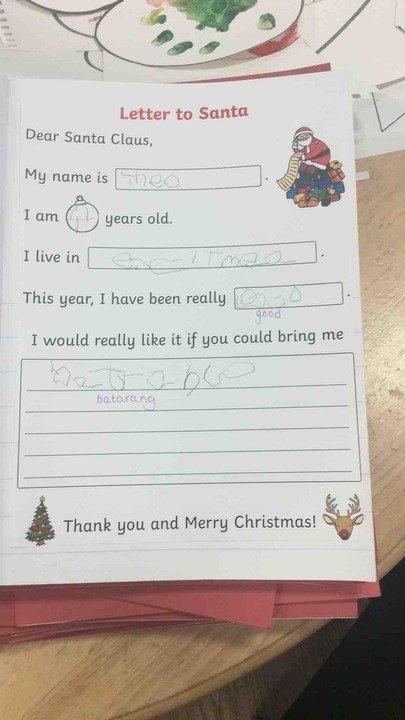 Letter to Santa
Dear Santa Claus,
My name is Theo.
I am 4 years old.
I live in .
This year, I have been really good.
good
I would really like it if you could bring me
batarang
Thank you and Merry Christmas!